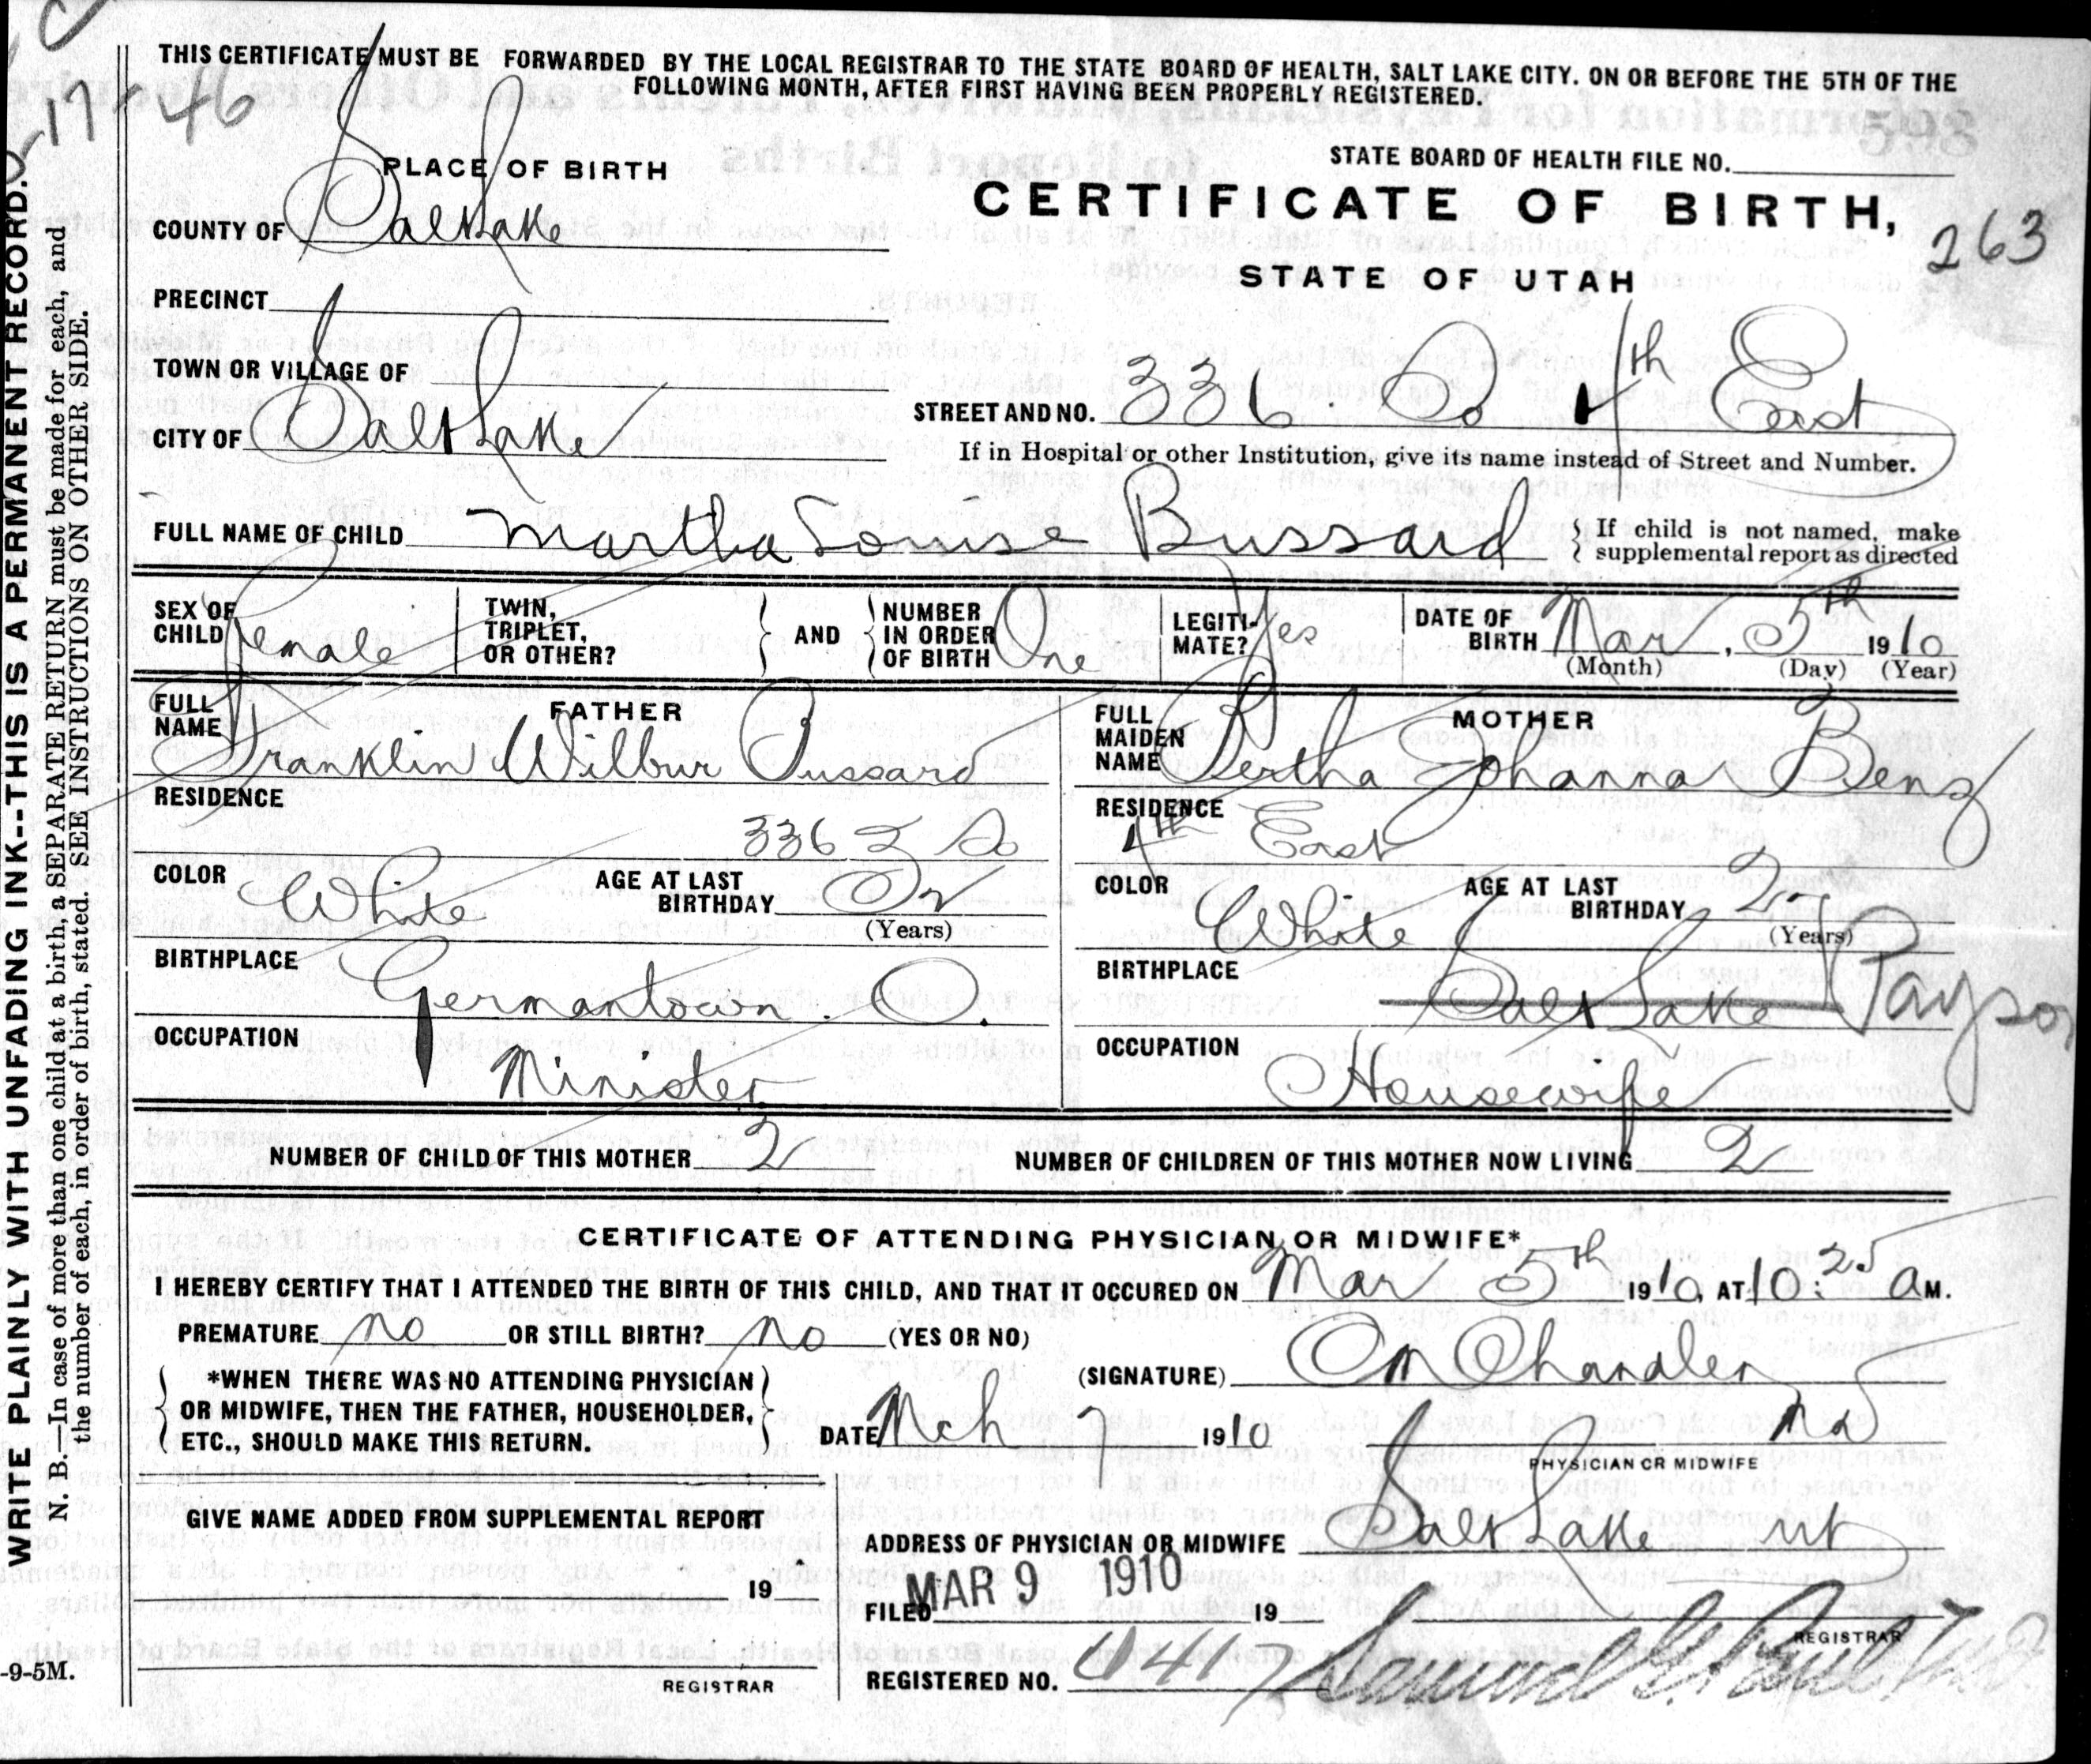 THIS CERTIFICATE MUST BE FORWARDED BY THE LOCAL REGISTRAR TO THE STATE BOARD OF HEALTH, SALT LAKE CITY. ON OR BEFORE THE 5TH OF THE
FOLLOWING MONTH, AFTER FIRST HAVING BEEN PROPERLY REGISTERED.
17-46
PLACE OF BIRTH
STATE BOARD OF HEALTH FILE NO.
CERTIFICATE OF BIRTH,
263
COUNTY OF Salt Lake
STATE OF UTAH
PRECINCT
TOWN OR VILLAGE OF
STREET AND NO. 336 So 4th East
CITY OF Salt Lake
If in Hospital or other Institution, give its name instead of Street and Number.
FULL NAME OF CHILD Martha Louise Bussard
If child is not named, make
supplemental report as directed
SEX OF CHILD Female
TWIN, TRIPLET, OR OTHER?
AND
NUMBER IN ORDER OF BIRTH One
LEGITIMATE? Yes
DATE OF BIRTH Mar, 5th 1910
(Month) (Day) (Year)
FATHER
FULL NAME Franklin Wilbur Bussard
MOTHER
FULL MAIDEN NAME Bertha Johanna Benz
RESIDENCE 336 So
RESIDENCE 4th East
COLOR White
AGE AT LAST BIRTHDAY
(Years)
COLOR White
AGE AT LAST BIRTHDAY
(Years)
BIRTHPLACE Germantown. O.
BIRTHPLACE Salt Lake Payson
OCCUPATION Minister
OCCUPATION Housewife
NUMBER OF CHILD OF THIS MOTHER 2
NUMBER OF CHILDREN OF THIS MOTHER NOW LIVING 2
CERTIFICATE OF ATTENDING PHYSICIAN OR MIDWIFE*
I HEREBY CERTIFY THAT I ATTENDED THE BIRTH OF THIS CHILD, AND THAT IT OCCURED ON Mar 5th 1910, AT 10:25 AM.
PREMATURE no OR STILL BIRTH? no (YES OR NO)
*WHEN THERE WAS NO ATTENDING PHYSICIAN
OR MIDWIFE, THEN THE FATHER, HOUSEHOLDER,
ETC., SHOULD MAKE THIS RETURN.
(SIGNATURE) Chandler
DATE Mch 7 1910
MD
PHYSICIAN OR MIDWIFE
GIVE NAME ADDED FROM SUPPLEMENTAL REPORT
19
REGISTRAR
ADDRESS OF PHYSICIAN OR MIDWIFE Salt Lake Ut
MAR 9 1910
FILED 19
REGISTRAR
REGISTERED NO.
WRITE PLAINLY WITH UNFADING INK--THIS IS A PERMANENT RECORD.
N. B.—In case of more than one child at a birth, a SEPARATE RETURN must be made for each, and
the number of each, in order of birth, stated. SEE INSTRUCTIONS ON OTHER SIDE.
-9-5M.